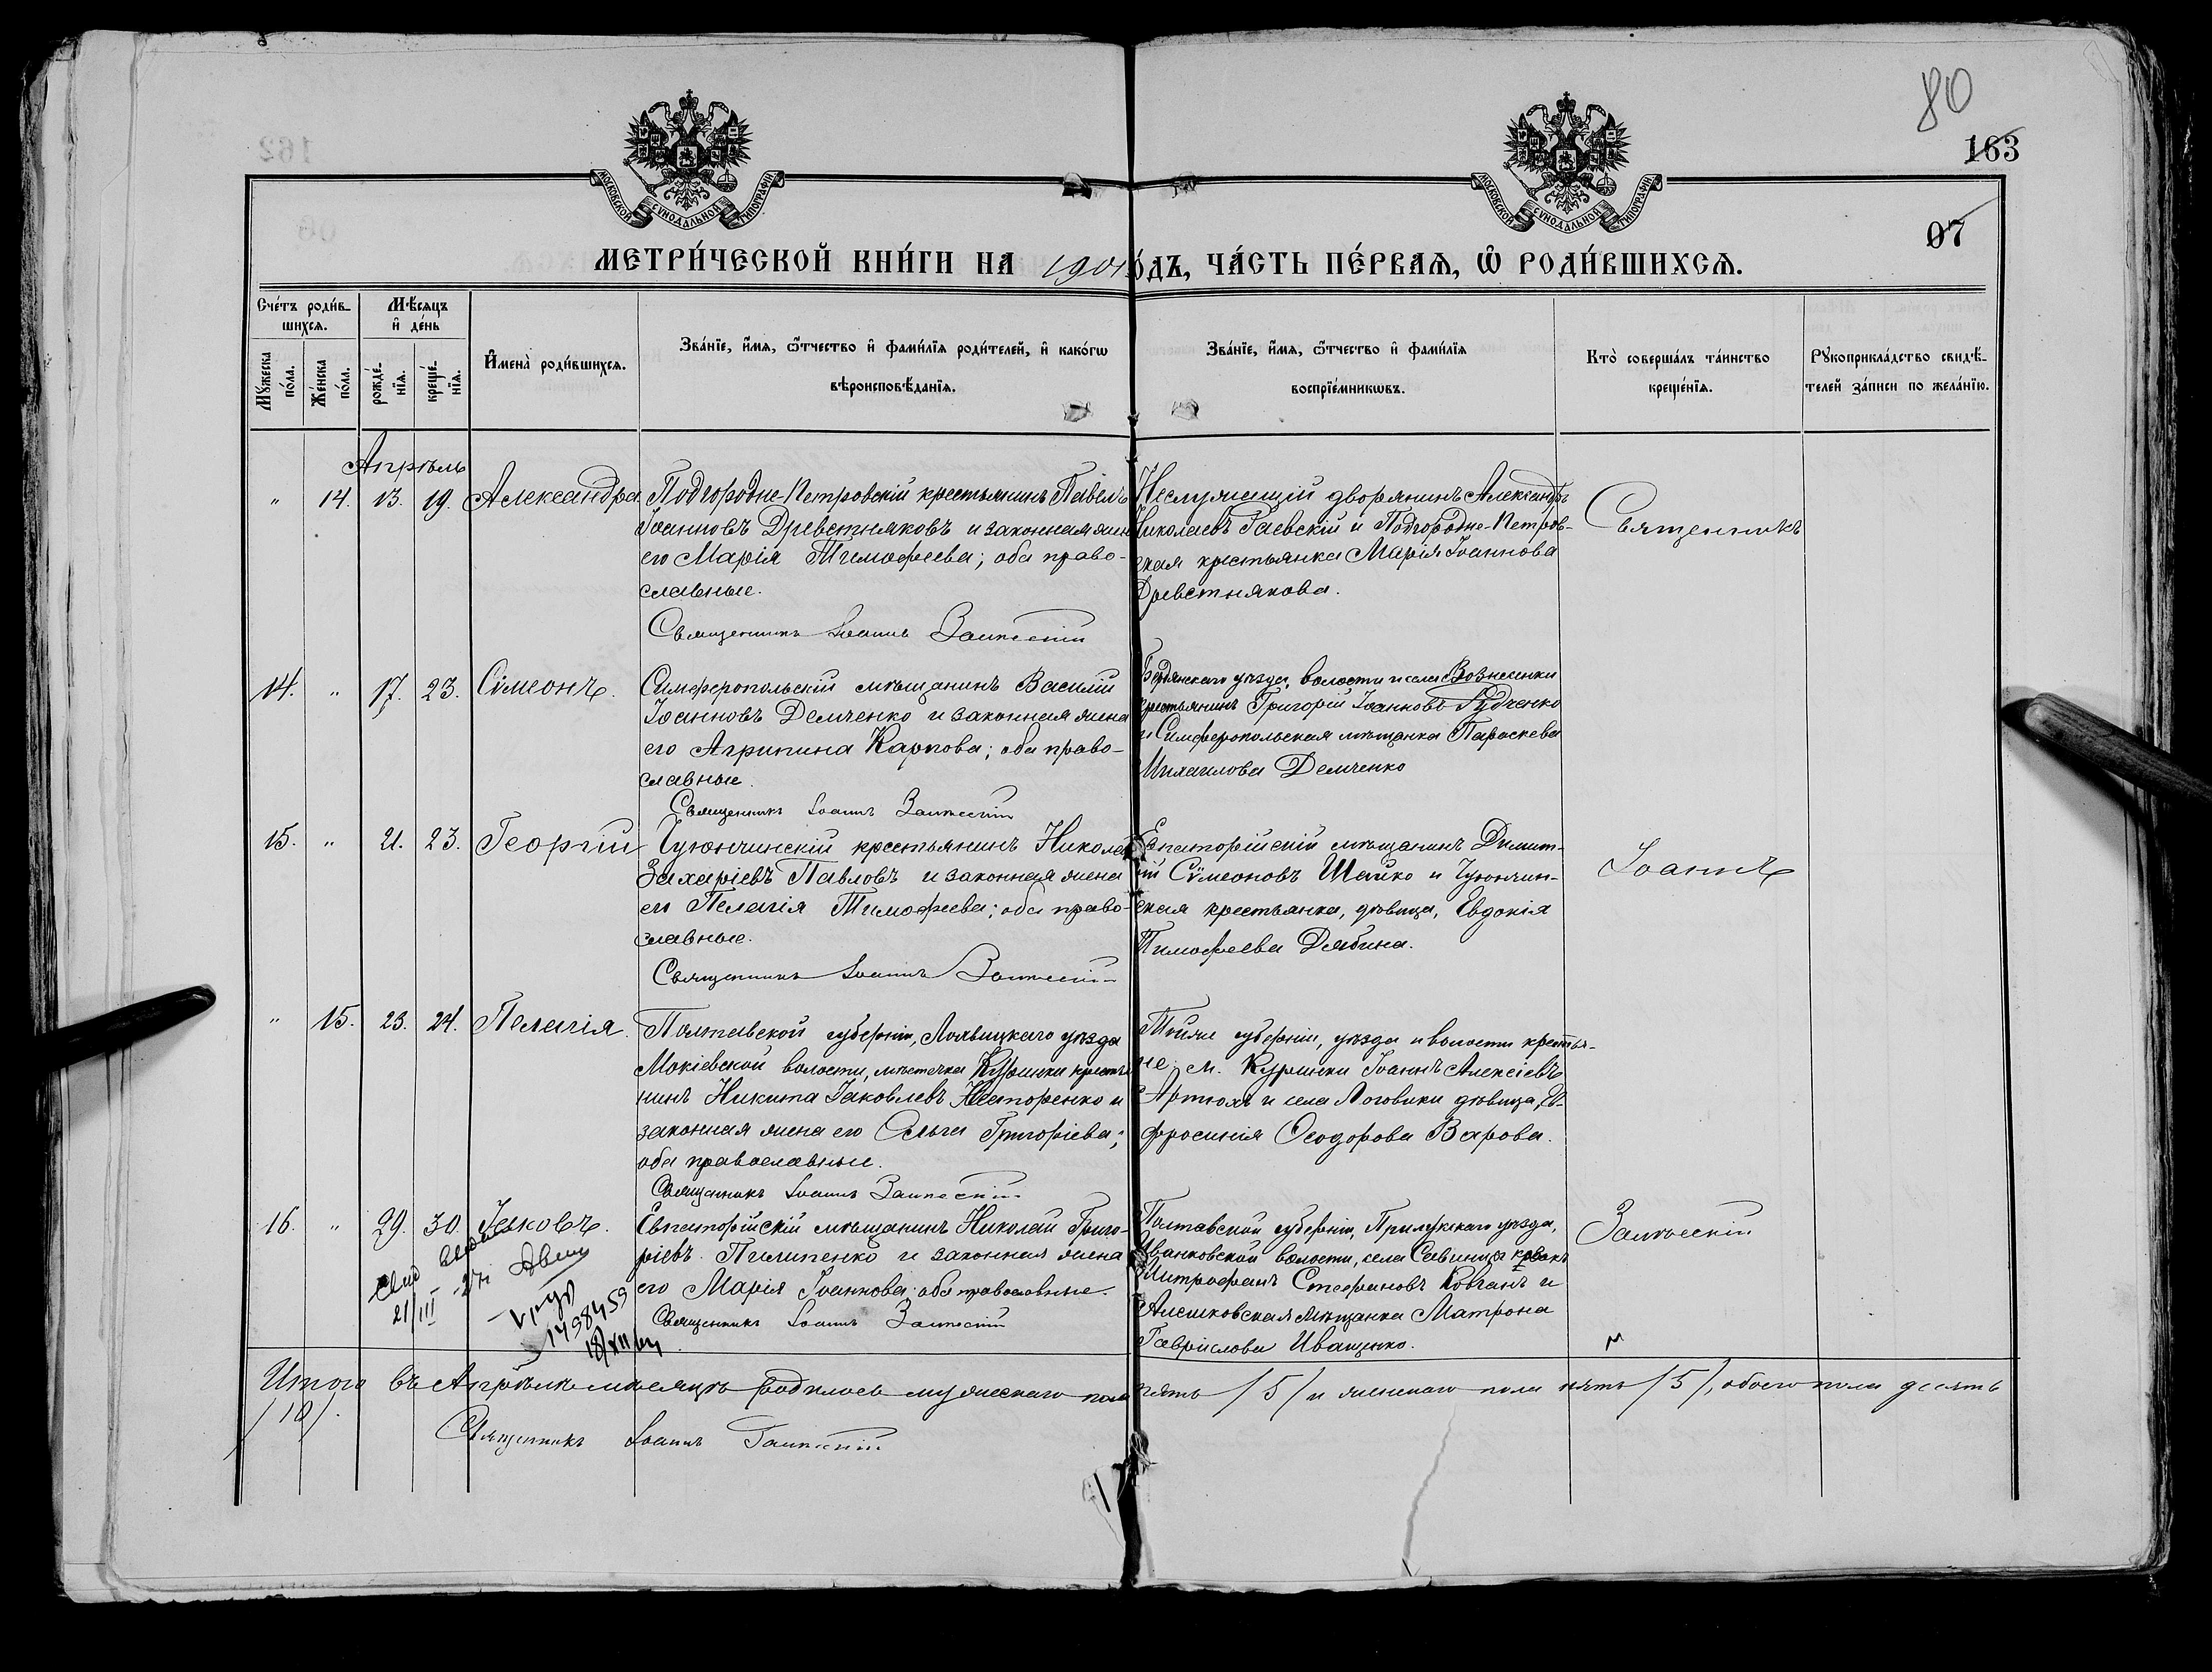 80
163
07
МОСКОВСКОЙ СѴНОДАЛЬНОЙ ТИПОГРАФІИ
МОСКОВСКОЙ СѴНОДАЛЬНОЙ ТИПОГРАФІИ
МЕТРИ́ЧЕСКОЙ КНИ́ГИ НА 1901 ОДЪ, ЧА́СТЬ ПЕ́РВАѦ, Ѡ РОДИ́ВШИХСѦ.
Сче́тъ роди́в-
шихсѧ.
Мѣ́сѧцъ
и҆ де́нь
Мꙋ́жеска
по́ла.
Же́нска
по́ла.
рожде́-
нїѧ.
креще́-
нїѧ.
И҆мена̀ роди́вшихсѧ.
Зва́нїе, и҆́мѧ, ѻ҆́тчество и҆ фами́лїѧ роди́телей, и҆ како́гѡ
вѣроисповѣ́данїѧ.
Зва́нїе, и҆́мѧ, ѻ҆́тчество и҆ фами́лїѧ
воспрїе́мникѡвъ.
Кто̀ соверша́лъ та́инство
креще́нїѧ.
Рꙋкоприкла́дство свидѣ́-
телей за́писи по жела́нїю.
Апрѣль
" 14. 13. 19. Александра
Подгородне-Петровскій крестьянинъ Павелъ
Іоанновъ Древетняковъ и законная жена
его Марія Тимофеева; оба право-
славные.
Священникъ Іоаннъ Залѣсскій
Неслужащій дворянинъ Александръ
Николаевъ Гаевскій и Подгородне-Петров-
ская крестьянка Марія Іоаннова
Древетнякова.
Священникъ
14. " 17. 23. Сѵмеонъ.
Симферопольскій мѣщанинъ Василій
Іоанновъ Демченко и законная жена
его Агрипина Карпова; оба право-
славные.
Священникъ Іоаннъ Залѣсскій
Бердянскаго уѣзда, волости и села Вознесенки
крестьянинъ Григорій Іоанновъ Рудченко
и Симферопольская мѣщанка Параскева
Михаилова Демченко
15. " 21. 23. Георгій
Чуюнчинскій крестьянинъ Николай
Захаріевъ Павловъ и законная жена
его Пелагія Тимофеева; оба право-
славные.
Священникъ Іоаннъ Залѣсскій
Евпаторійскій мѣщанинъ Димит-
рій Сѵмеоновъ Шайко и Чуюнчин-
ская крестьянка, дѣвица, Евдокія
Тимофеева Дябина.
Іоаннъ
" 15. 23. 24. Пелагія.
Полтавской губерніи, Лохвицкаго уѣзда
Мокіевской волости, мѣстечка Куринки крестья
нинъ Никита Іаковлевъ Несторенко и
законная жена его Ольга Григоріева;
оба православные.
Священникъ Іоаннъ Залѣсскій
Тойже губерніи, уѣзда и волости крестья-
не: м. Куринки Іоаннъ Алексіевъ
Артюхъ и села Логовики дѣвица, Ев-
фросинія Ѳеодорова Варова.
16. " 29. 30. Іаковъ.
Евпаторійскій мѣщанинъ Николай Григо-
ріевъ Пилипенко и законная жена
его Марія Іоаннова; оба православные.
Священникъ Іоаннъ Залѣсскій
Полтавской губерніи, Прилукскаго уѣзда,
Иванковской волости, села Савинцы
Митрофанъ Стефановъ Ковганъ и
Алешковская мѣщанка Матрона
Гавріилова Иващенко.
Залѣсскій
21/III
1498459
Итого въ Апрѣлѣ мѣсяцѣ родилось мужескаго пола пять /5/ и женскаго пола пять /5/, обоего пола десять
/10/.
Священникъ Іоаннъ Залѣсскій